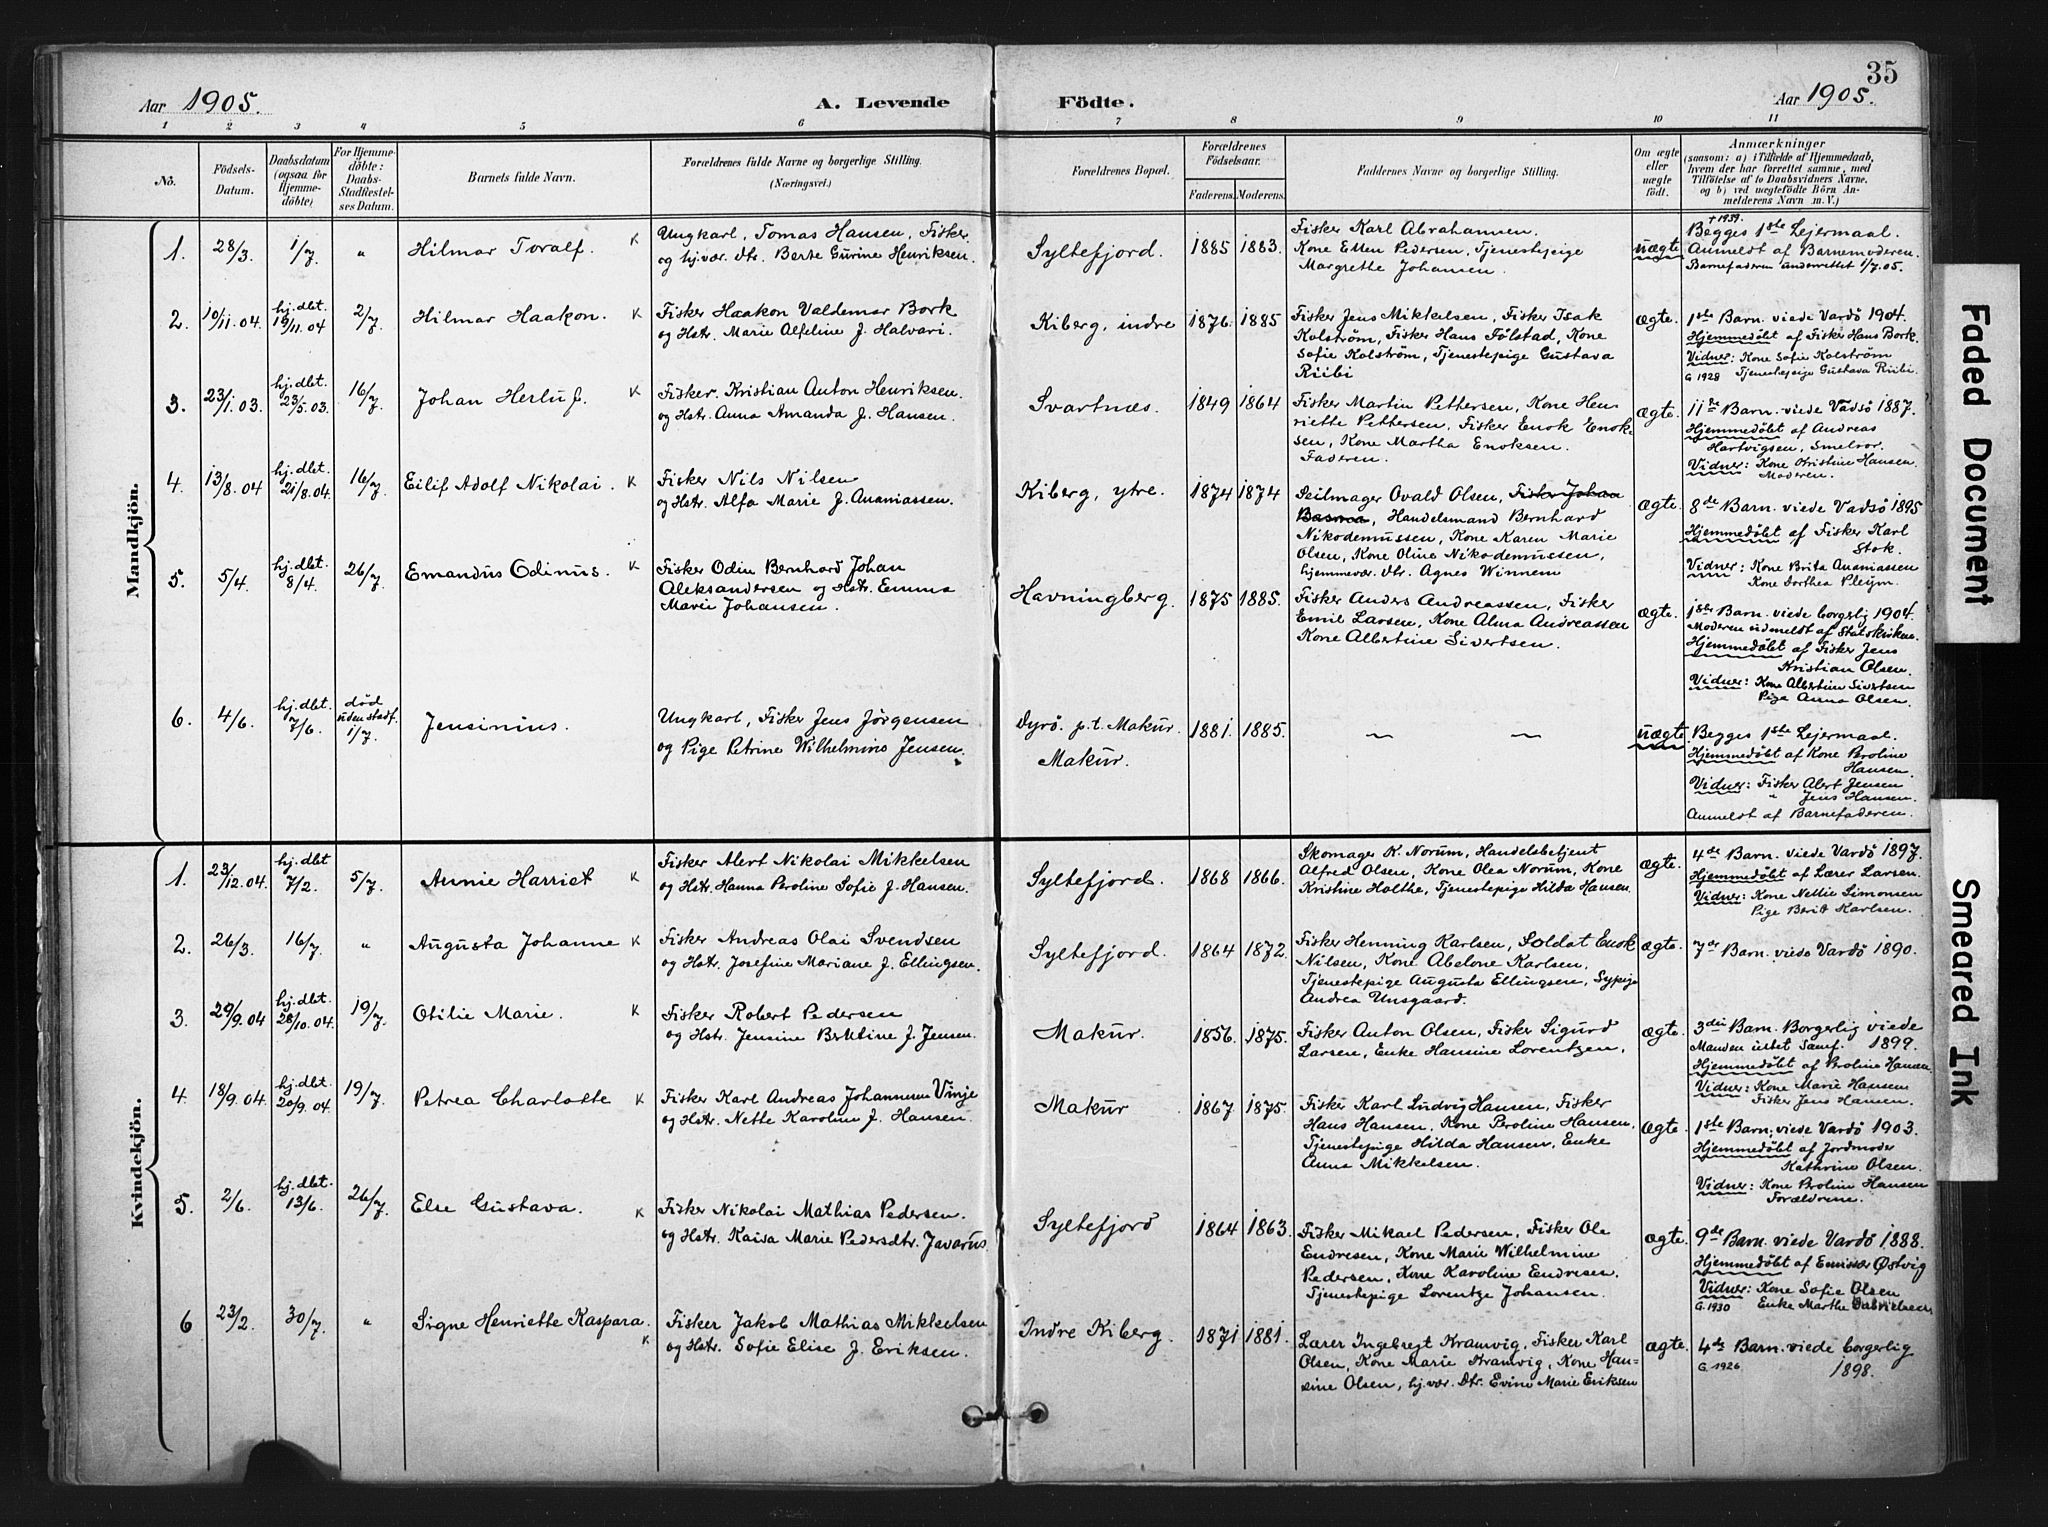 35
Aar 1905.
A. Levende
Födte.
Aar 1905.
1 2 3 4 5 6 7 8 9 10 11
No.
Födsels-
Datum.
Daabsdatum
(ogsaa for
Hjemme-
döbte)
For Hjemme-
döbte:
Daabs-
Stadfæstel-
ses Datum.
Barnets fulde Navn.
Forældrenes fulde Navne og borgerlige Stilling.
(Næringsvei.)
Forældrenes Bopæl.
Forældrenes
Födselsaar.
Faderens. Moderens.
Faddernes Navne og borgerlige Stilling.
Om ægte
eller
uægte
födt.
Anmærkninger
(saasom: a) i Tilfælde af Hjemmedaab,
hvem der har forrettet samme, med
Tilföielse af to Daabsvidners Navne,
og b) ved uægtefödte Börn An-
melderens Navn m. V.)
Mandkjön.
1. 28/3. 1/7. " Hilmar Toralf. K
Ungkarl, Tomas Hansen, Fisker
og hj.vær. dtr. Berte Gurine Henriksen.
Syltefjord. 1885 1883.
Fisker Karl Abrahamsen.
Kone Ellen Pedersen, Tjenestepige
Margrethe Johansen.
uægte
+1939.
Begges 1ste Lejermaal.
Anmeldt af Barnemoderen.
Barnefaderen underrettet 1/7.05.
2. 10/11.04. hj.dbt.
16/11.04 2/7 Hilmar Haakon. K
Fisker Haakon Valdemar Bork
og Hstr. Marie Alfeline J. Halvari.
Kiberg, indre 1876. 1885
Fisker Jens Mikkelsen, Fisker Isak
Kolström, Fisker Hans Fölstad, Kone
Sofie Kolström, Tjenestepige Gustava
Riibi
ægte.
1ste Barn. viede Vardö 1904.
Hjemmedöbt af Fisker Hans Bork.
Vidner: Kone Sofie Kolström
G 1928 Tjenestepige Gustava Riibi.
3. 23/1.03. hj.dbt.
23/5.03. 16/7 Johan Herluf. K
Fisker. Kristian Anton Henriksen.
og Hstr. Anna Amanda J. Hansen.
Svartnæs. 1849 1864
Fisker Martin Pettersen, Kone Hen
riette Pettersen, Fisker Enok Enok-
sen, Kone Martha Enoksen.
Faderen.
ægte.
11te Barn. viede Vadsö 1887.
Hjemmedöbt af Andreas
Hartvigsen, Smelror.
Vidner: Kone Kristine Hansen.
Moderen.
4. 13/8.04 hj.dbt.
21/8.04 16/7 Eilif Adolf Nikolai. K
Fisker Nils Nilsen
og Hstr. Alfa Marie J. Ananiassen.
Kiberg, ytre. 1874 1874
Seilmager Ovald Olsen, Fisker Johan
Basma, Handelsmand Bernhard
Nikodemussen, Kone Karen Marie
Olsen, Kone Oline Nikodemussen,
hjemmevær. dtr. Agnes Winnem
ægte.
8de Barn. viede Vadsö 1895
Hjemmedöbt af Fisker Karl
Stok.
Vidner: Kone Brita Ananiassen
Kone Dorthea Pleym.
5. 5/4. hj.dbt.
8/4. 26/7 Emandus Odinus. K
Fisker Odin Bernhard Johan
Aleksandersen og Hstr. Emma
Marie Johansen.
Havningberg. 1875 1885.
Fisker Anders Andreassen, Fisker
Emil Larsen, Kone Alma Andreassen
Kone Albertine Sivertsen.
ægte.
1ste Barn. viede borgerlig 1904.
Moderen udmeldt af Statskirken.
Hjemmedöbt af Fisker Jens
Kristian Olsen.
Vidner: Kone Albertine Sivertsen
Pige Anna Olsen.
6. 4/6. hj.dbt.
7/6. död
uden stadf.
1/7. Jensinius.
Ungkarl, Fisker Jens Jörgensen
og Pige Petrine Wilhelmine Jensen.
Dyrö. p.t. Makur.
Makur. 1881. 1885.
uægte
Begges 1ste Lejermaal.
Hjemmedöbt af Kone Peroline
Hansen.
Vidner: Fisker Alert Jensen
" Jens Hansen.
Anmeldt af Barnefaderen.
Kvindekjön.
1. 23/12.04. hj.dbt
7/2. 5/7. Annie Harriet K
Fisker Alert Nikolai Mikkelsen
og Hstr. Hanna Peroline Sofie J. Hansen.
Syltefjord. 1868 1866.
Skomager K. Norum, Handelsbetjent
Alfred Olsen, Kone Olea Norum, Kone
Kristine Holthe, Tjenestepige Hilda Hansen.
ægte.
4de Barn. viede Vardö 1897.
Hjemmedöbt af Lærer Larsen.
Vidner: Kone Nettie Simonsen
Pige Berit Karlsen.
2. 26/3. 16/7. " Augusta Johanne K
Fisker Andreas Olai Svendsen
og Hstr. Josefine Mariane J. Ellingsen.
Syltefjord. 1864 1872.
Fisker Henning Karlsen, Soldat Enok
Nilsen, Kone Abelone Karlsen,
Tjenestepige Augusta Ellingsen, Sypige
Andrea Unsgaard.
ægte.
7de Barn. viede Vardö 1890.
3. 29/9.04 hj.dbt.
28/10.04. 19/7. Otilie Marie. K
Fisker Robert Pedersen
og Hstr. Jensine Bertine J. Jensen.
Makur. 1856. 1875.
Fisker Anton Olsen, Fisker Sigurd
Larsen, Enke Hansine Lorentzen.
ægte.
3die Barn. Borgerlig viede
Manden udet Samf. 1899.
Hjemmedöbt af Peroline Hansen
Vidner: Kone Marie Hansen
Fisker Jens Hansen.
4. 18/9.04. hj.dbt.
20/9.04 19/7. Petrea Charlotte K
Fisker Karl Andreas Johannesen Vinje
og Hstr. Nette Karoline J. Hansen.
Makur 1867 1875.
Fisker Karl Ludvig Hansen, Fisker
Hans Hansen, Kone Peroline Hansen,
Tjenestepige Hilda Hansen, Enke
Anna Mikkelsen.
ægte.
1ste Barn. viede Vardö 1903.
Hjemmedöbt af Jordmoder
Kathrine Olsen.
Vidner: Kone Peroline Hansen
Forældrene.
5. 2/6. hj.dbt.
13/6. 26/7. Else Gustava. K
Fisker Nikolai Mathias Pedersen.
og Hstr. Kaisa Marie Pedersdtr. Javarus
Syltefjord 1864 1863.
Fisker Mikael Pedersen, Fisker Ole
Endresen, Kone Marie Wilhelmine
Pedersen, Kone Karoline Endresen.
Tjenestepige Lorentze Johansen.
ægte.
9de Barn. viede Vardö 1888.
Hjemmedöbt af Emisær Østvig
Vidner: Kone Sofie Olsen
G.1930 Enke Marthe Gabrielsen
6 23/2. 30/7. " Signe Henriette Kaspara. K
Fisker Jakob Mathias Mikkelsen
og Hstr. Sofie Elise J. Eriksen.
Indre Kiberg. 1871 1881.
Lærer Ingebregt Kramvig, Fisker Karl
Olsen, Kone Marie Kramvig, Kone Han-
sine Olsen, hj.vær. Dtr. Evine Marie Eriksen
ægte.
4de Barn. viede borgerlig
G. 1926 1898.
Faded Document
Smeared Ink